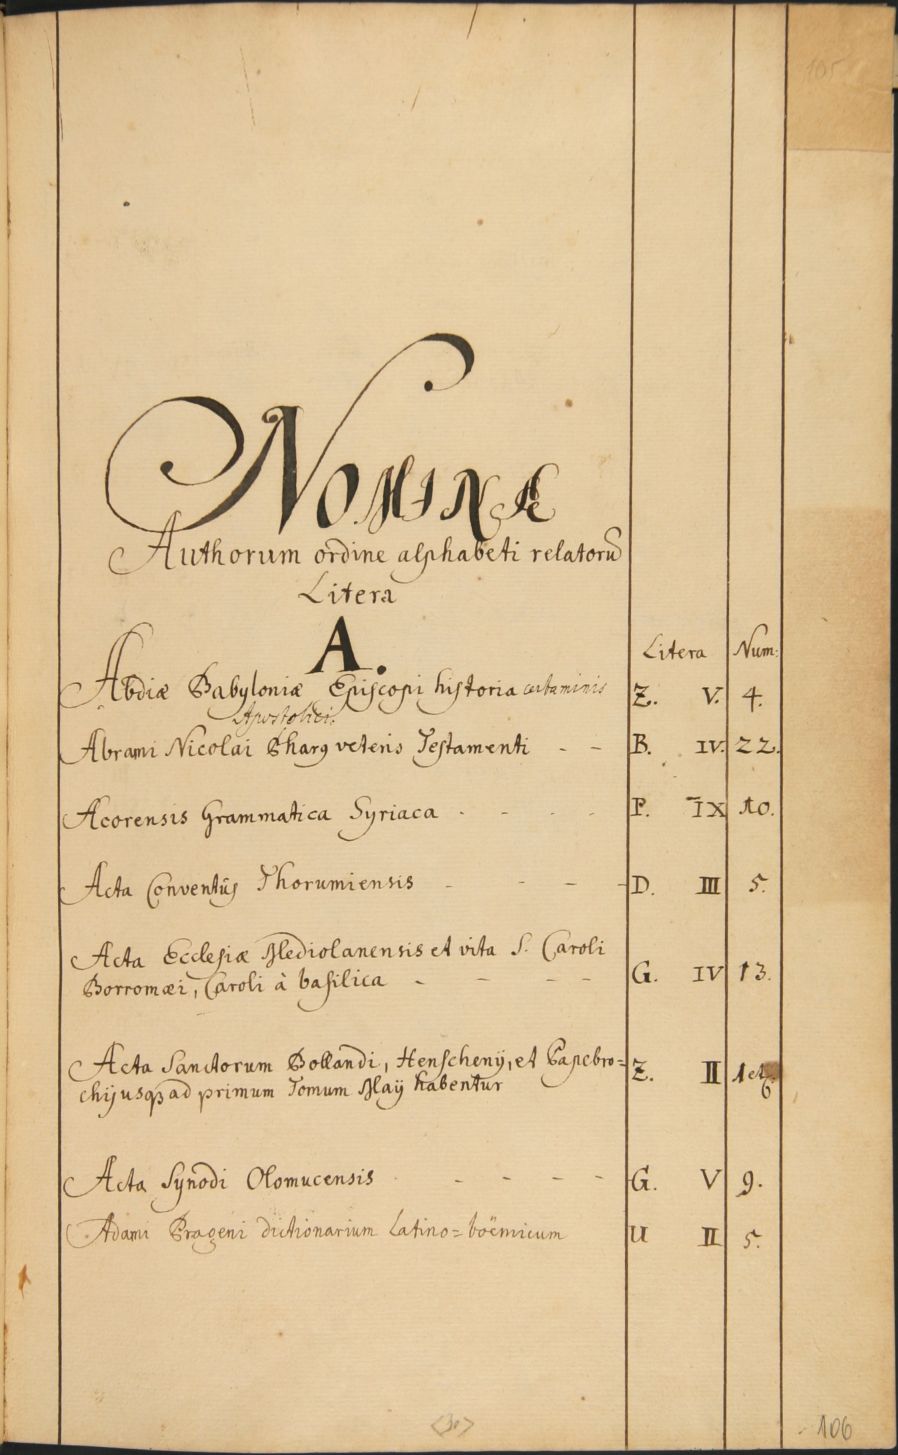 105
NOMINA
Authorum ordine alphabeti relatorū
Litera
A.
Litera Num:
Abdiæ Babyloniæ Episcopi historia certaminis Z. V. 4.
Apostolici.
Abrami Nicolai Pharus veteris Testamenti - - B. IV. 22.
Acorensis Grammatica Syriaca - - - - P. IX 10.
Acta Conventûs Thorumiensis - - - - D. III 5.
Acta Ecclesiæ Mediolanensis et vita S. Caroli
Borromæi, Caroli à basilica - - - - G. IV 13.
Acta Sanctorum Bollandi, Henschenij, et Papebro=
chij usq ad primum Tomum Maij habentur Z. II 1 et
6
Acta Synodi Olomucensis - - - - G. V 9.
Adami Prageni dictionarium Latino=boëmicum U II 5.
<30>
106